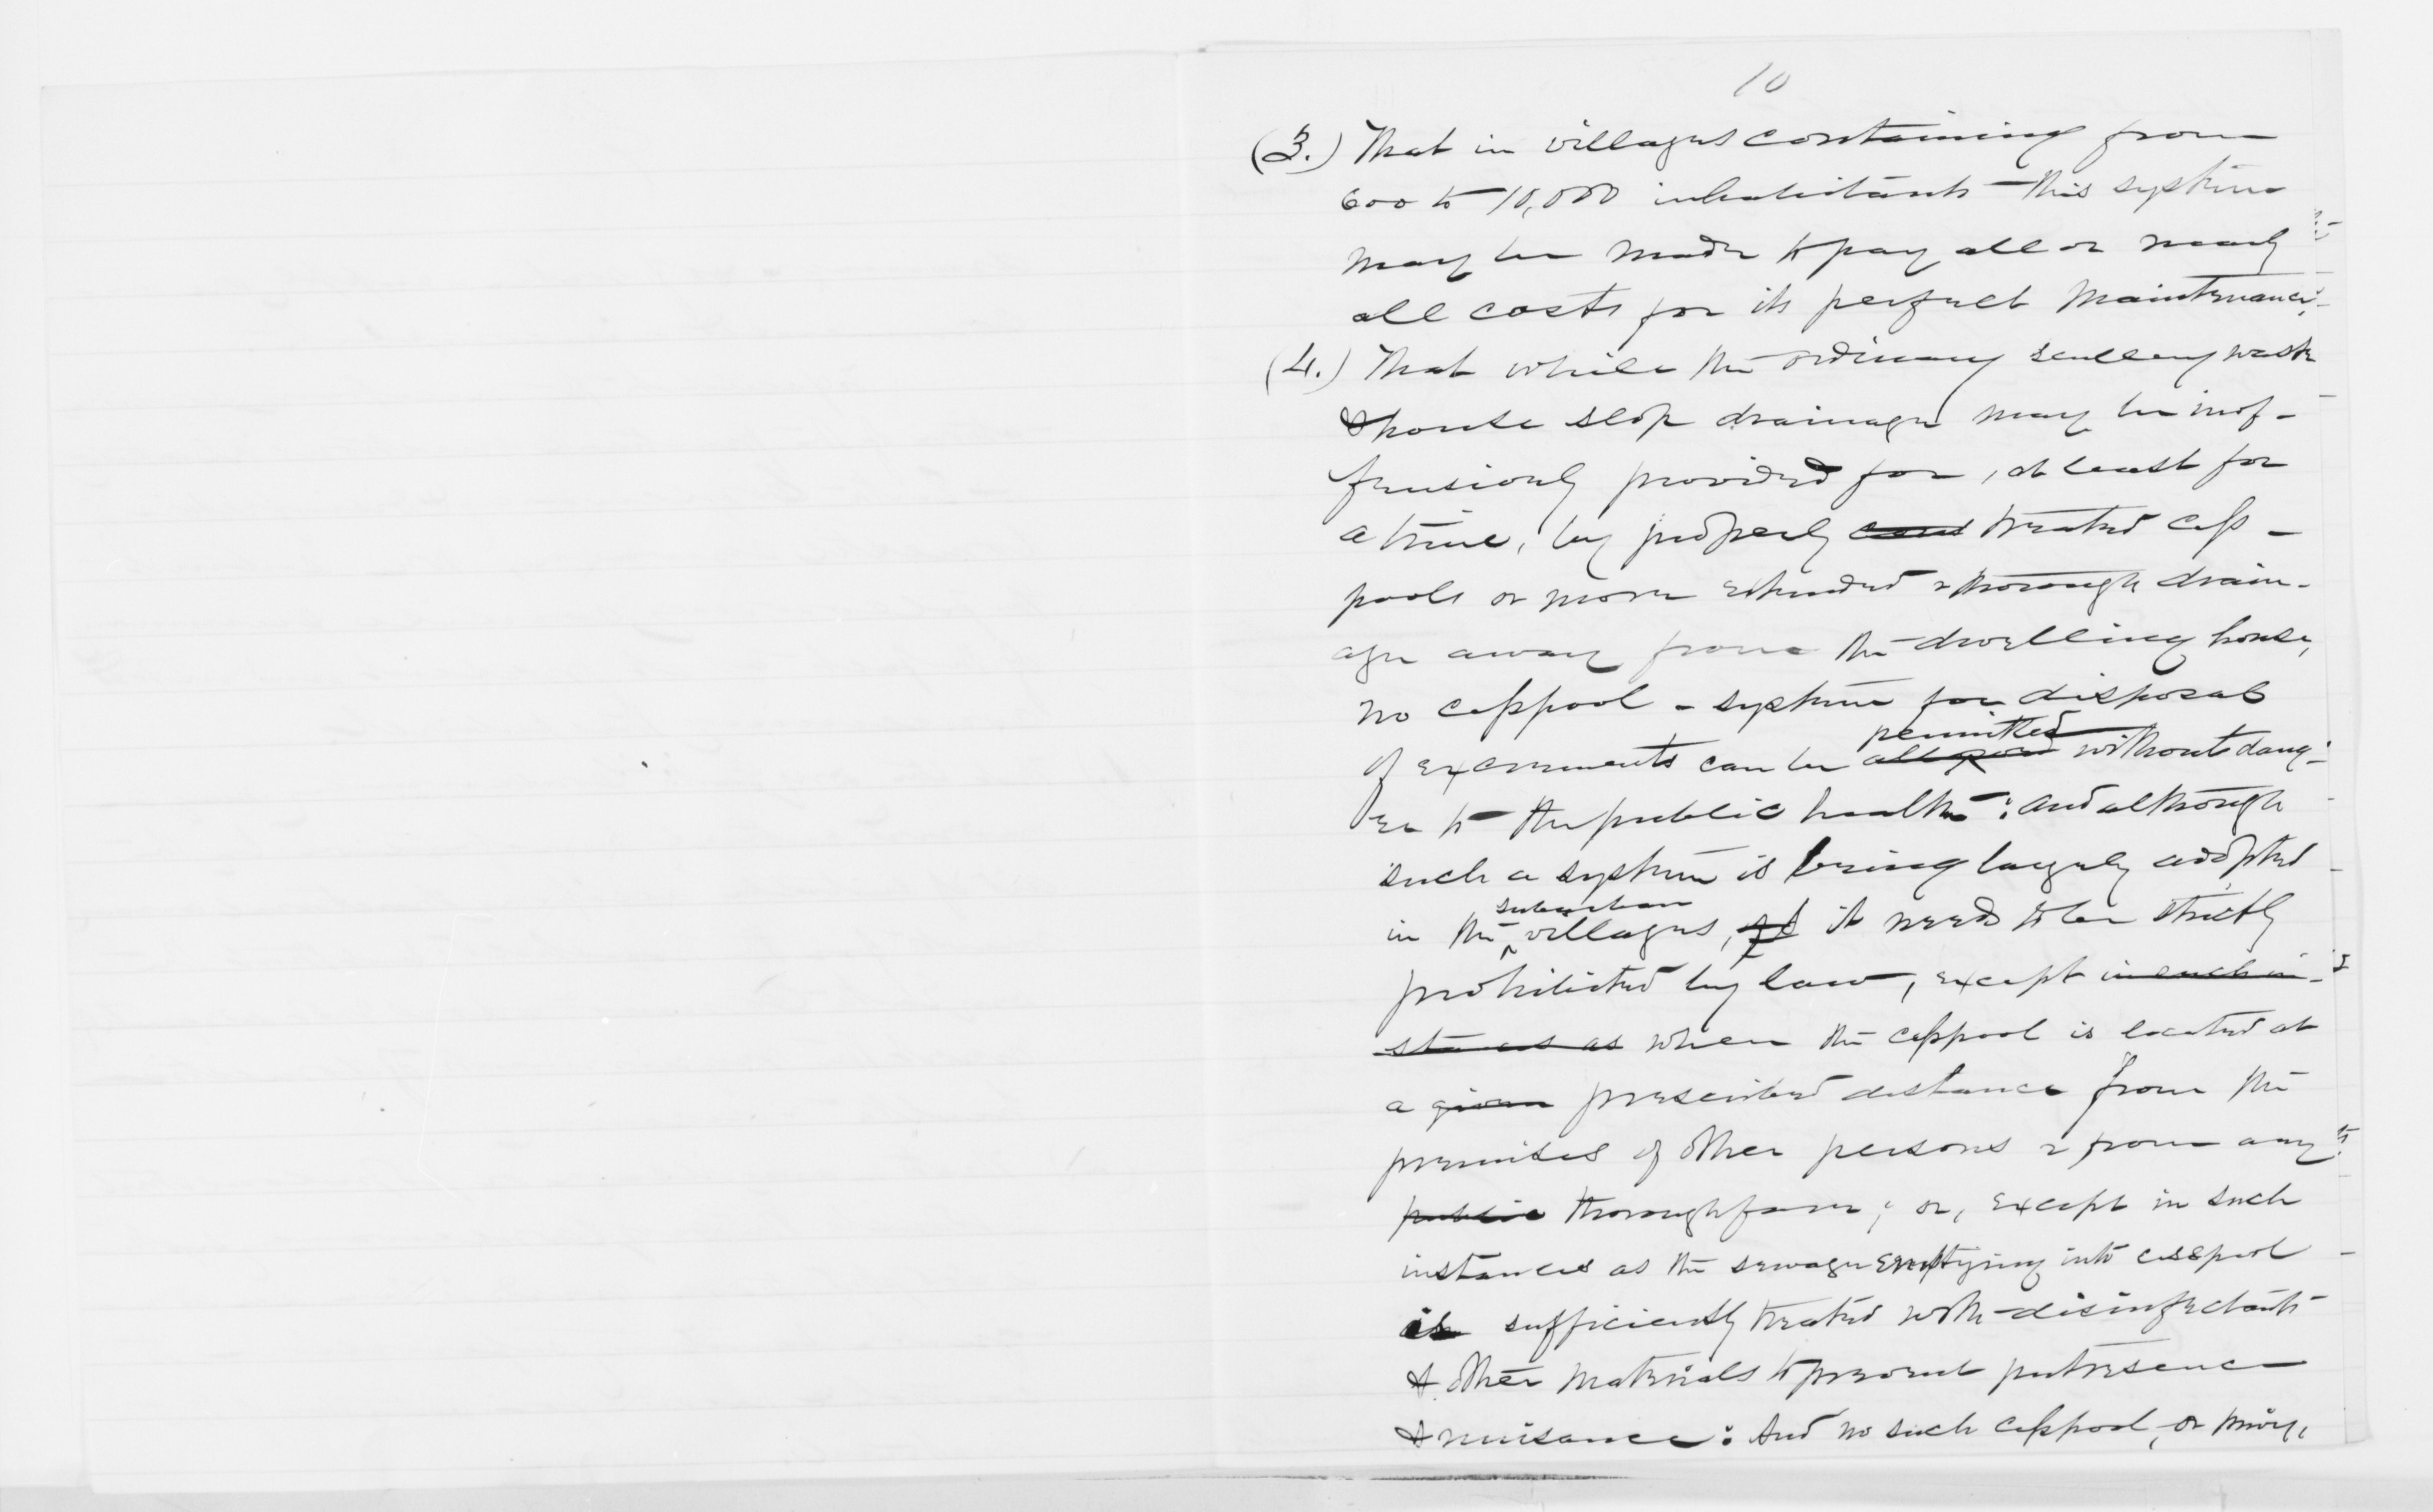 10
(3.) That in villages containing from
600 to 10,000 inhabitants this system
may be made to pay all or nearly
all costs for its perfect maintenance.
(4.) That while the ordinary scullery waste
& house slop drainage may be inof-
fensively provided for, at least for
a time, by properly cons treated cess-
pools or more extended & thorough drain-
age away from the dwelling house,
no cesspool-system for disposal
permitted
of excrements can be allowed without dang-
er to the public health: and although
such a system is being largely adopted
suburban
in the villages, yet it needs to be strictly
prohibited by law, except in such in-
stances as when the cesspool is located at
a given prescribed distance from the
premises of other persons & from any
public thoroughfare; or, except in such
instances as the sewage emptying into cesspool
is sufficiently treated with disinfectants
& other materials to prevent putrescence
& nuisance: And no such cesspool, or privy,